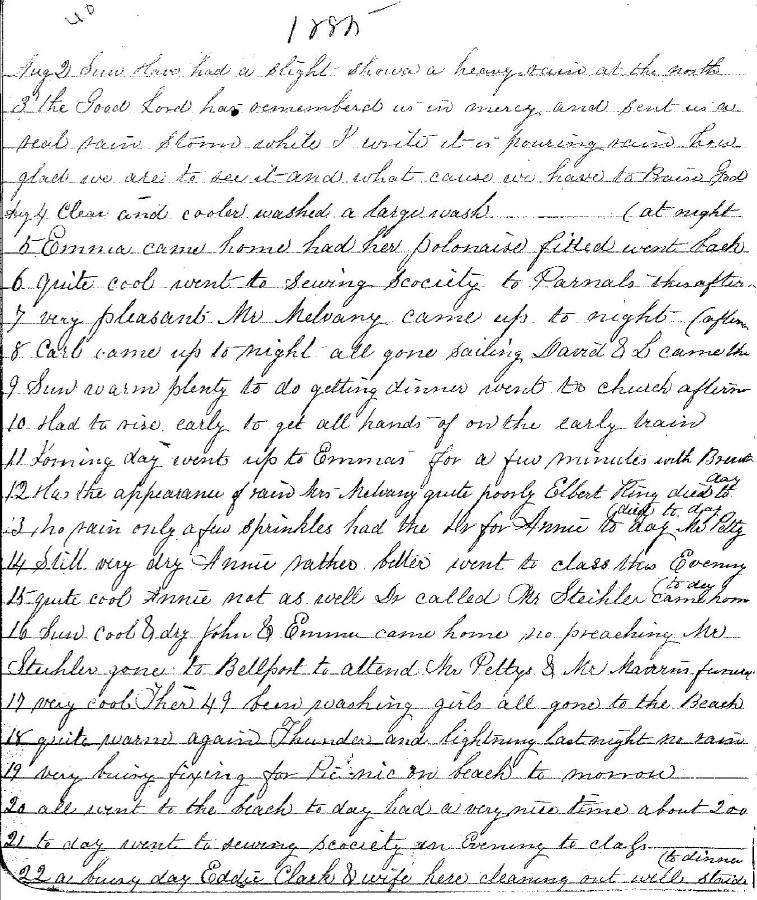 40
1885
Aug 2 Sun Have had a slight shower a heavy rain at the north
3 the Good Lord has rememberd us in mercy and sent us a
real rain storm while I write it is pouring rain how
glad we are to see it and what cause we have to Praise God
Aug 4 Clear and cooler washed a large wash (at night
5 Emma came home had her polonaise fitted went back
6 quite cool went to sewing scociety to Parnals this after
7 very pleasant Mr Melvany came up to night (aftern
8 Carl came up to night all gone sailing David & L came this
9 Sun warm plenty to do getting dinner went to church aftern
10 Had to rise early to get all hands of on the early train
11 Ironing day went up to Emmas for a few minutes with
day
12 Has the appearance of rain Mrs Melvany quite poorly Elbert King died to
(died to day
13 no rain only a few sprinkles had the Dr for Annie to day Mr Petty
14 Still very dry Annie rather better went to class this Evening
(to day
15 quite cool Annie not as well Dr called Mr Steihler came hom
16 Sun cool & dry John & Emma came home no preaching Mr
Steihler gone to Bellport to attend Mr Pettys & Mr funeral
17 very cool Ther 49 been washing girls all gone to the Beach
18 quite warm again Thunder and lightning last night no rain
19 very buisy fixing for Pic nic on beach to morrow
20 all went to the beach to day had a very nice time about 200
21 to day went to sewing scociety in Evening to class
(to dinner
22 a buisy day Eddie Clark & wife here cleaning out well staid